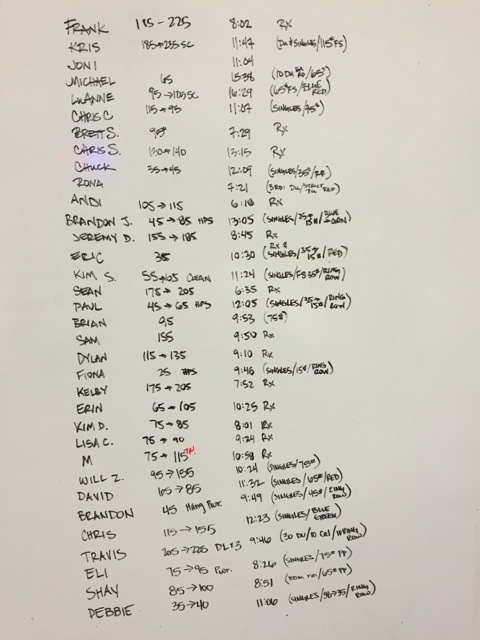 FRANK 185-225 8:02 RX
KRIS 185→235 SC 11:47 (DU+SINGLES/115# FS)
JONI 11:04
MICHAEL 65 15:38 (10 DU EA RD/65#)
LUANNE 95→105 SC 16:29 (65# FS/BLUE RED)
CHRIS C 115→95 11:07 (SINGLES/75#)
BRETT S. 95# 7:29 RX
CHRIS S. 130→140 13:15 RX
CHUCK 35→45 12:09 (SINGLES/35#/RR)
RONA 7:21 (3RD: DU/STRICT PU RED)
ANDI 105→115 6:18 RX
BRANDON J. 45→85 HPS 13:05 (SINGLES/25#
JEREMY D. 155→185 8:45 RX
ERIC 35 10:30 (RX # SINGLES/35→15#/RED)
KIM S. 55→65 CLEAN 11:24 (SINGLES/FS 35#/RING ROW)
SEAN 175→205 6:35 RX
PAUL 45→65 HPS 12:05 (SINGLES/35→15#/RING ROW)
BRIAN 95 9:53 (75#)
SAM 155 9:50 RX
DYLAN 115→135 9:10 RX
FIONA 25 HPS 9:46 (SINGLES/15#/RING ROW)
KELBY 175→205 7:52 RX
ERIN 65→105 10:25 RX
KIM D. 75→85 8:01 RX
LISA C. 75→90 9:24 RX
M 75→115 PR! 10:58 RX
WILL Z. 95→155 10:24 (SINGLES/75#)
DAVID 65→85 11:32 (SINGLES/65#/RED)
BRANDON 45 Hang Pwr. 9:49 (SINGLES/45#/RING ROW)
CHRIS 115→155 12:23 (SINGLES/BLUE GREEN)
TRAVIS 205→225 DL×3 9:46 (30 DU/10 CAL/11 RING ROW)
ELI 75→95 Pwr. 8:26 (SINGLES/75# PP)
SHAY 85→100 8:51 (/65# PP)
DEBBIE 35→40 11:06 (SINGLES/30→35/RING ROW)